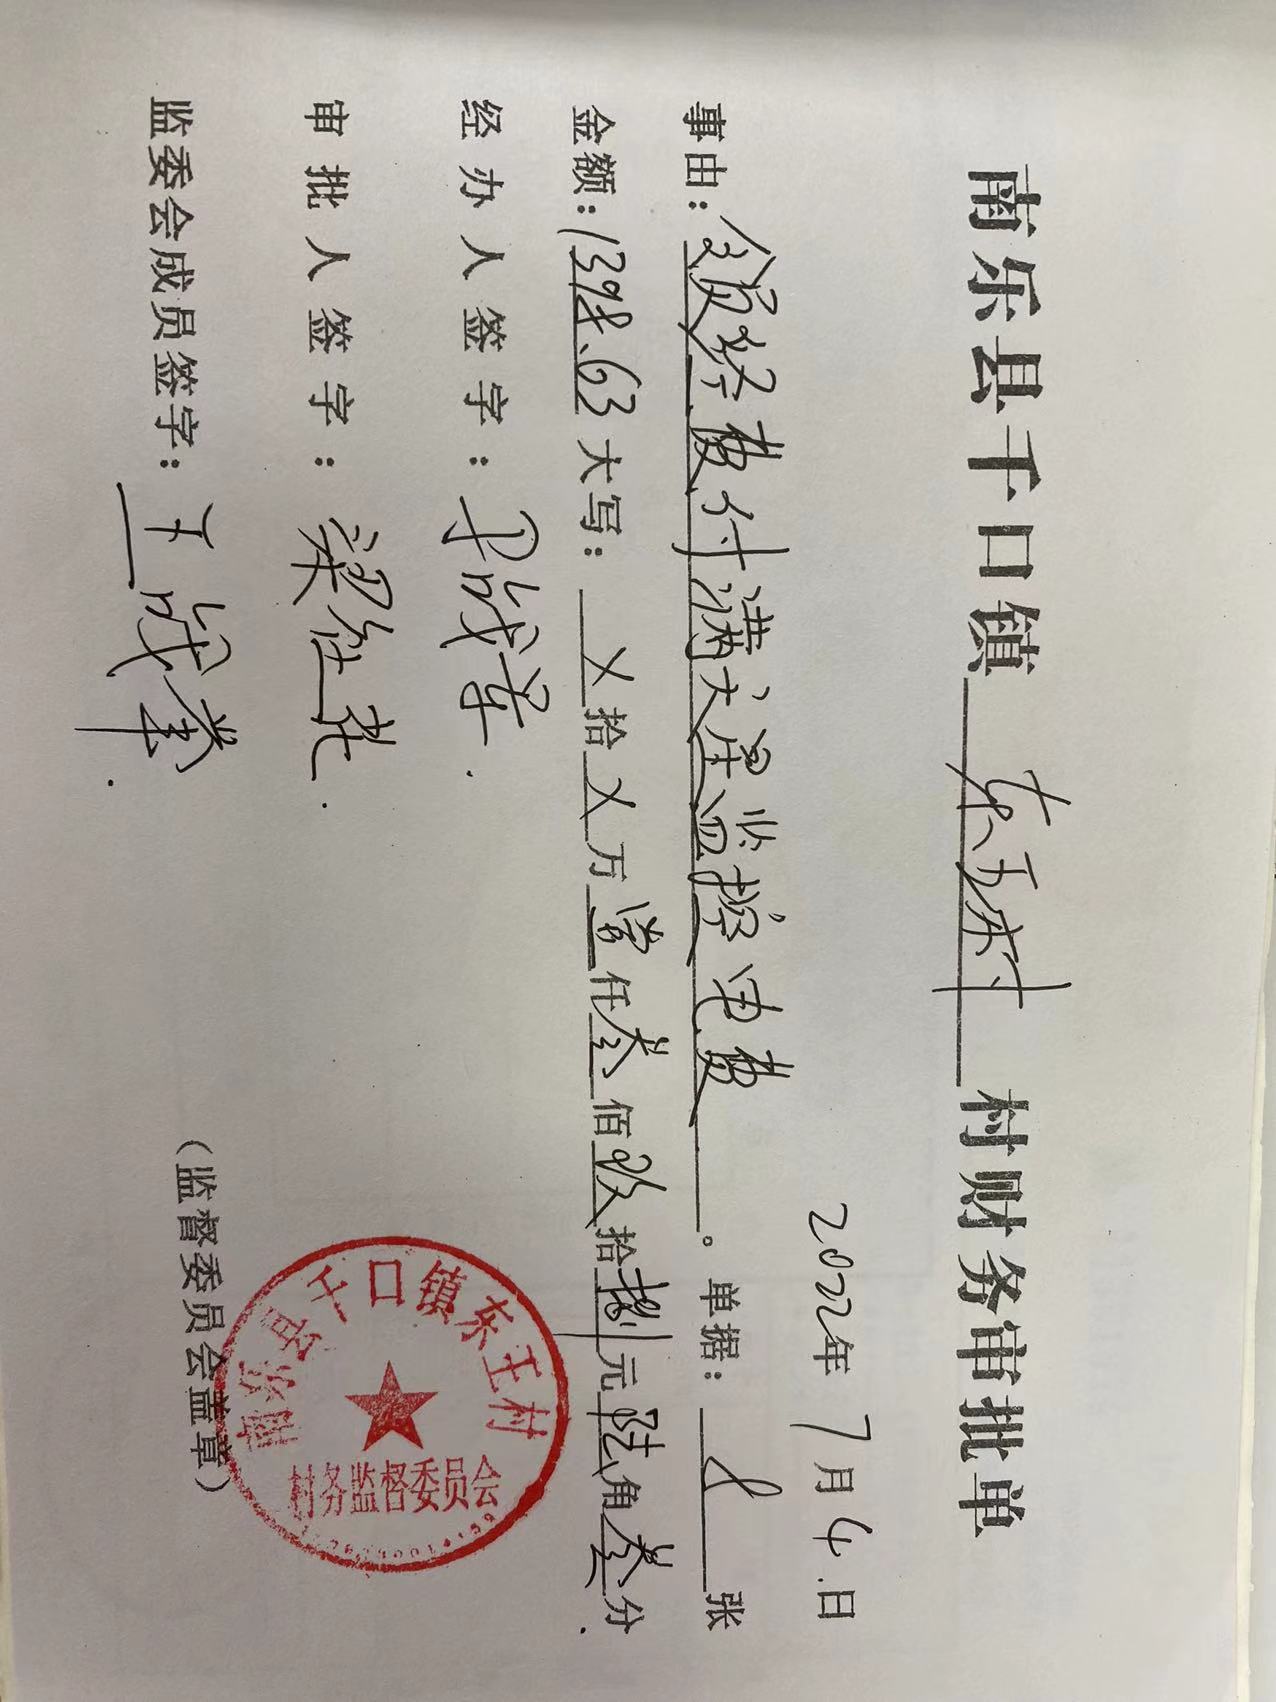 南乐县千口镇东王村村财务审批单
2022年7月4日
事由:全员经费付满意度监控电费。单据:1张
金额:1398.63大写:X拾X万壹仟叁佰玖拾捌元陆角叁分
经办人签字:
审批人签字:梁
监委会成员签字:王
(监督委员会盖章)
南乐县千口镇东王村
村务监督委员会